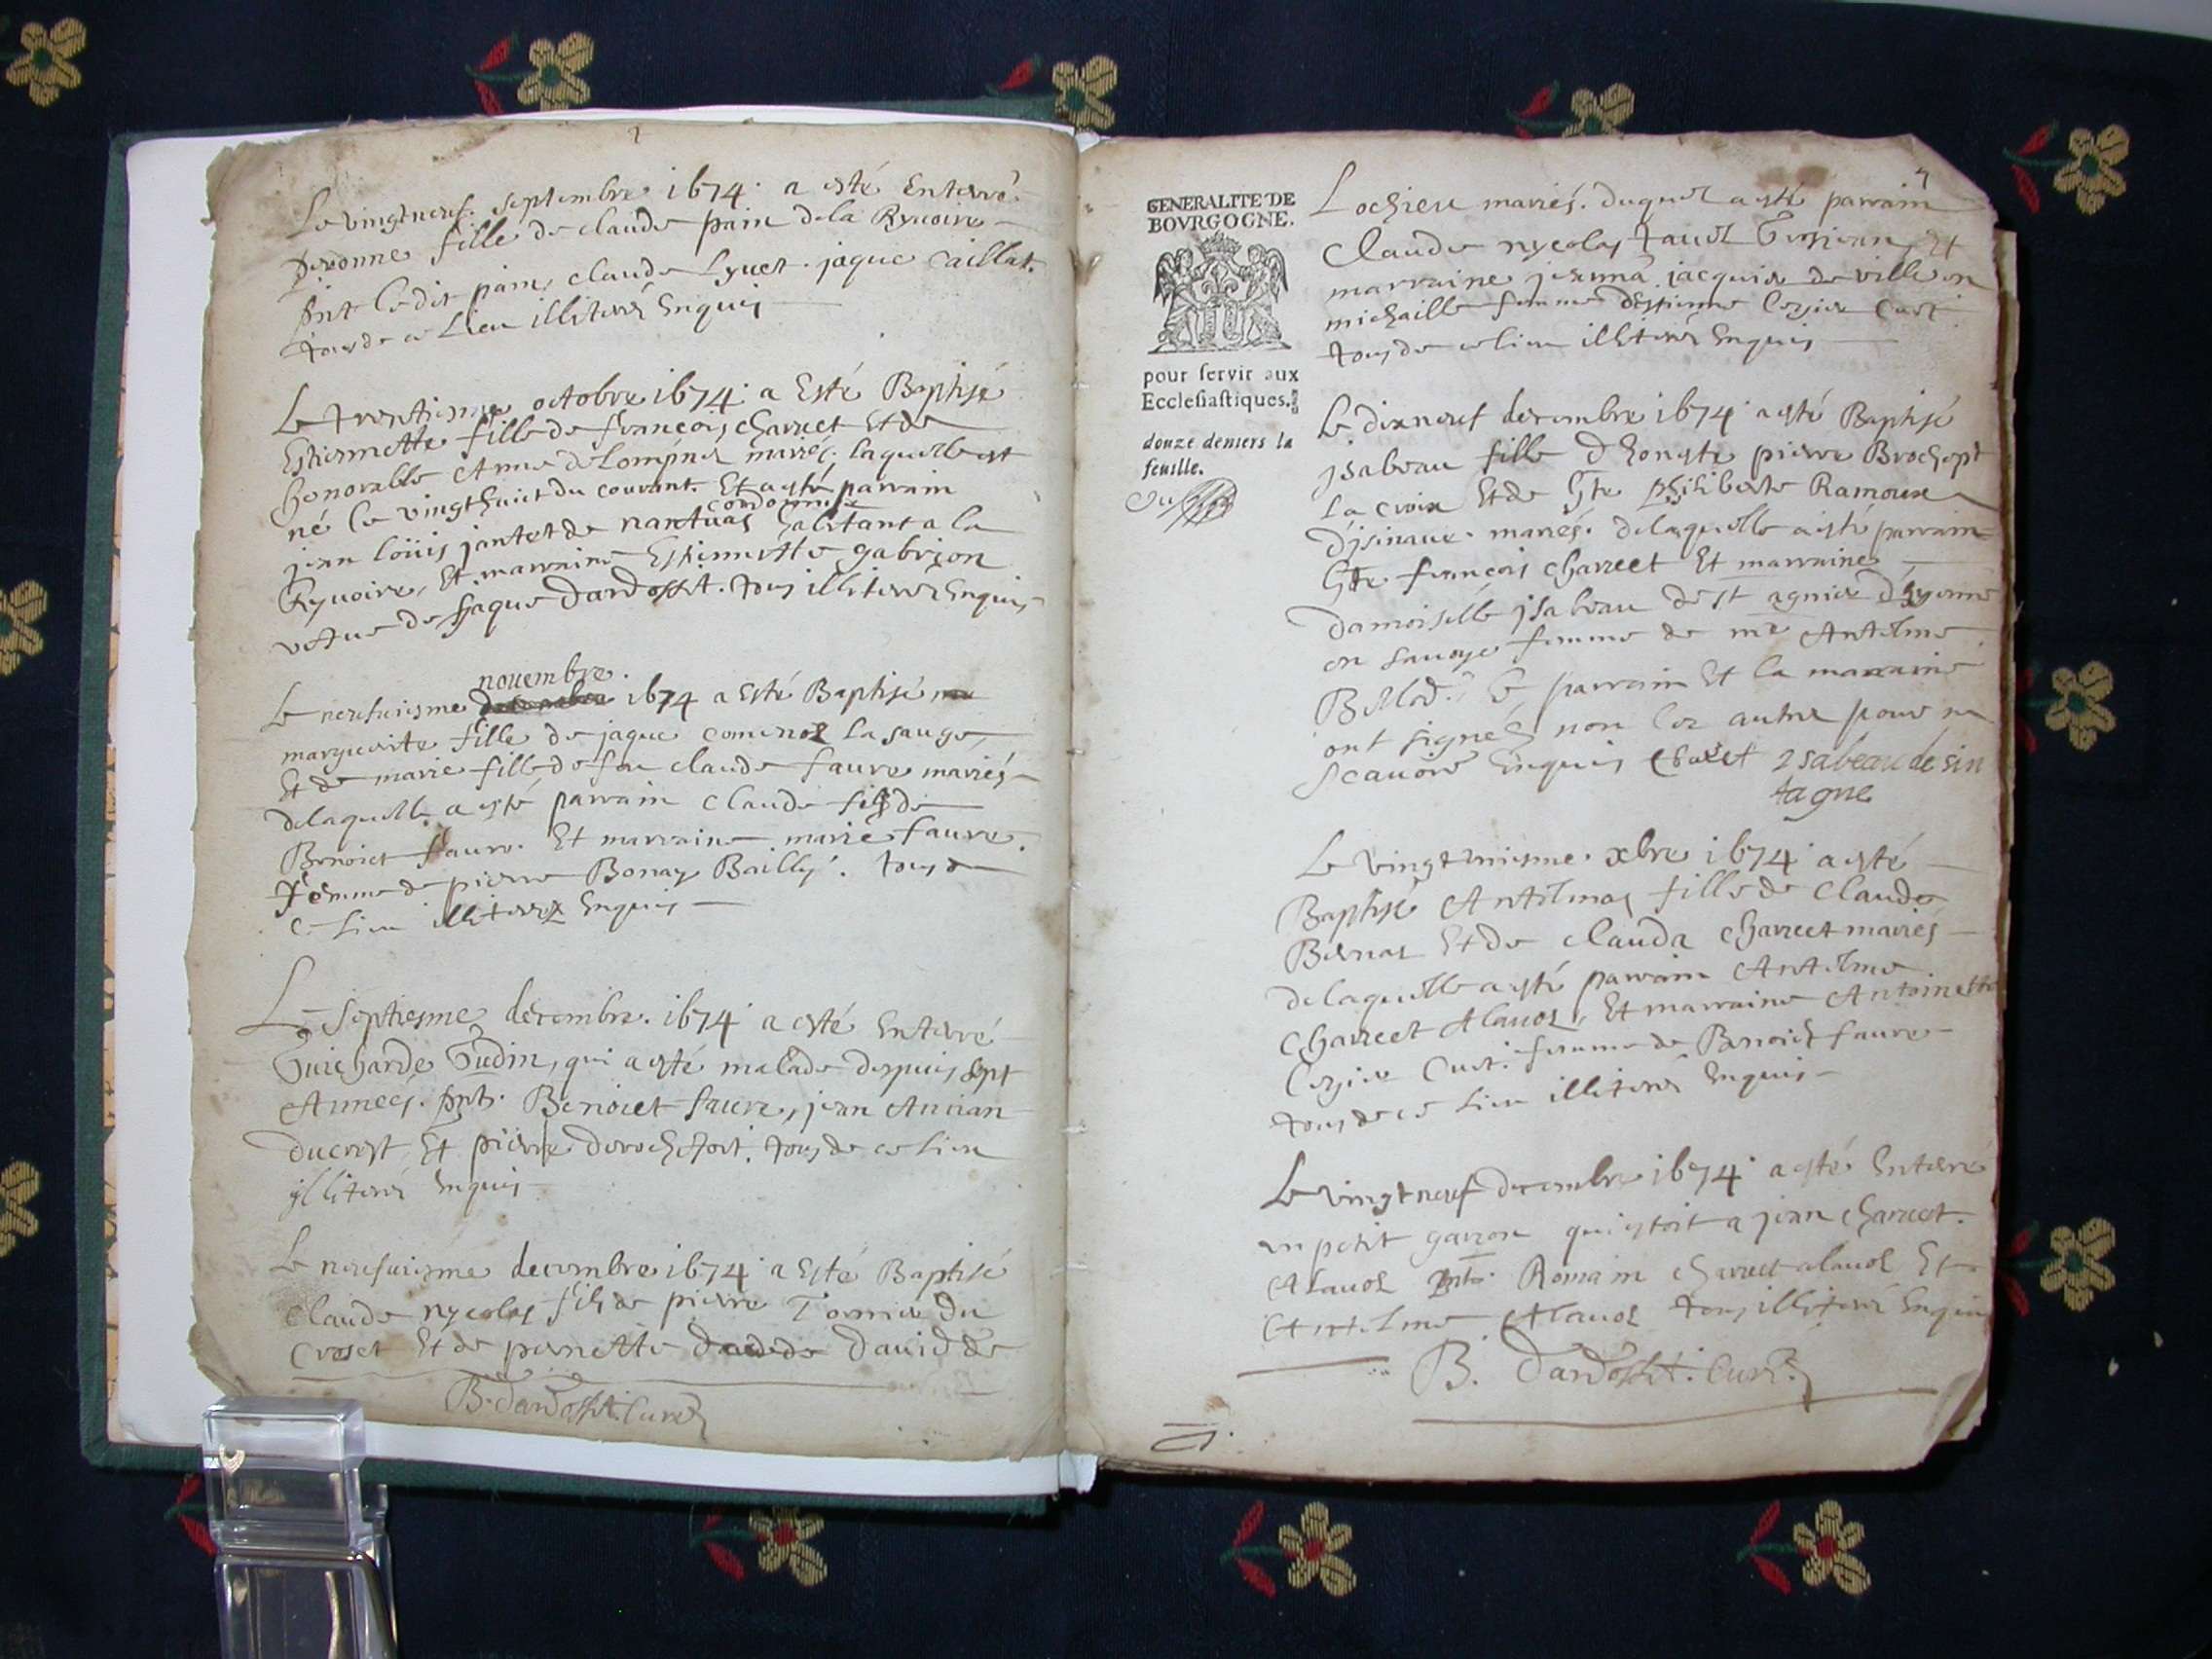 Le vingtneuf septembre 1674 a esté Enterré
peronne fille de claude pain dela Ryuoire
pnt ledit pain, claude Lyuet jaque Caillat
tous de ce Lieu illiterés Enquis
Le trentiesme octobre 1674 a Esté Baptisé
Estiennette fille de françois charuet Et de
honorable Anne de Lompnes mariés. laquelle est
né le vingthuict du courant. Et a esté parrain
cordonnier
jean loüis jantet de nantuas habitant a la
Ryuoire, Et marraine Estiennette gabrion
vefue de jaque Dardossit. tous illiterés Enquis
nouembre
Le neufuiesme 1674 a Esté Baptisé
marguerite fille de jaque la sauge
Et de marie fille de feu claude faure mariés
delaquelle a esté parrain claude fils de
Benoict faure. Et marraine marie faure
femme de pierre Bonaz Bailly. tous de
ce Lieu illiterés Enquis
Le Septiesme decembre 1674 a esté Enterré
Guicharde Gudin, qui a esté malade depuis sept
Années. pnts. Benoict faure, jean
ducrest Et pierre derochefort. tous de ce Lieu
jlliterés Enquis
Le neufuiesme decembre 1674 a Esté Baptisé
Claude nycolas fils de pierre Tornier Du
Croset Et de pernette Dauid de
B. Dardossit. Curé
4
GENERALITE DE
BOVRGOGNE.
pour servir aux
Ecclesiastiques.
douze deniers la
feuille.
Lochieu mariés. duquel a esté parrain
Claude nycolas Et
marraine jacquier de ville en
michaille femme d'Estienne Cozier Curt
tous de ce lieu illiterés Enquis
Le dixneuf decembre 1674 a esté Baptisé
jsabeau fille d'honeste pierre Brochept
La croix Et de hte philiberte Ramoux
D'jsinaue mariés. delaquelle a esté parrain
hte françois charuet Et marraine
Damoiselle jsabeau de st agnier
en sauoye femme de me Antelme
Billod. le parrain Et la marraine
ont signés non les autres pour ne
scauoir Enquis Charuet 2sabeau de sin
tagne
Le vingtuniesme xbre 1674 a esté
Baptisé Antelmaz fille de Claude
Bernas Et de clauda charuet mariés
delaquelle a esté parrain Antelme
Charuet Alauoz, Et marraine Antoinette
Cozier Curt. femme de Benoict faure
tous de ce Lieu illiterés Enquis
Le vingtneuf decembre 1674 a esté Enterré
un petit garzon qui estoit a jean charuet
Alauoz pnts. Romain charuet alauoz Et
Antelme Alauoz tous illiterés Enquis
B. Dardossit. Curé